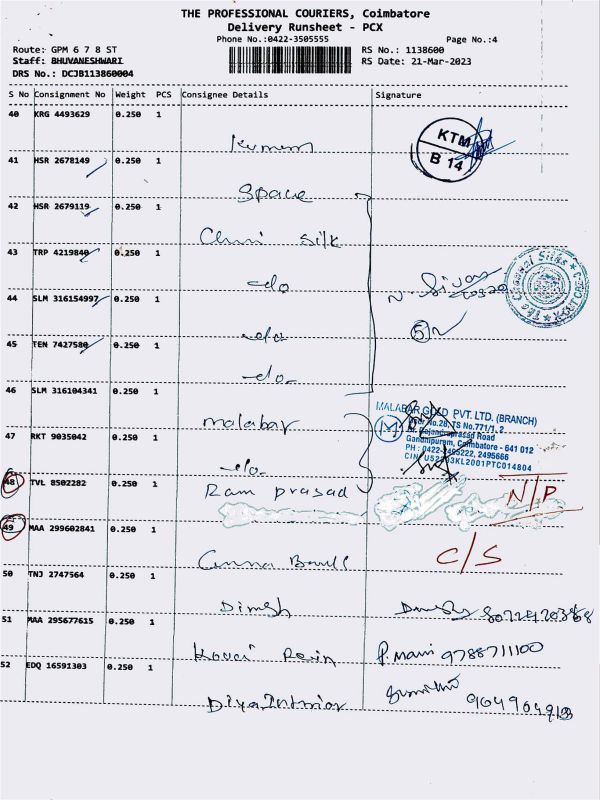 THE PROFESSIONAL COURIERS, Coimbatore
Delivery Runsheet - PCX
Phone No.:0422-3505555
Page No.:4
Route: GPM 6 7 8 ST
RS No.: 1138600
Staff: BHUVANESHWARI
RS Date: 21-Mar-2023
DRS No.: DCJB113860004
S No Consignment No Weight PCS Consignee Details Signature
40 KRG 4493629 0.250 1
KTM
B 14
41 HSR 2678149 0.250 1
Space
42 HSR 2679119 0.250 1
silk
43 TRP 4219840 0.250 1
-do
The Chennai Silks
44 SLM 316154997 0.250 1
-do
5
45 TEN 7427580 0.250 1
-do-
46 SLM 316104341 0.250 1
malabar
MALABAR GOLD PVT. LTD. (BRANCH)
No.28, TS No.771/1, 2
Rajendraprasad Road
Gandhipuram, Coimbatore - 641 012
PH : 0422-2495222, 2495666
47 RKT 9035042 0.250 1
-do-
M
48 TVL 8502282 0.250 1
Ram prasad
N/P
49 MAA 299602841 0.250 1
C/S
50 TNJ 2747564 0.250 1
Dinesh
51 MAA 295677615 0.250 1
Kovai
P. Mani 9788711100
52 EDQ 16591303 0.250 1
Diya Interior